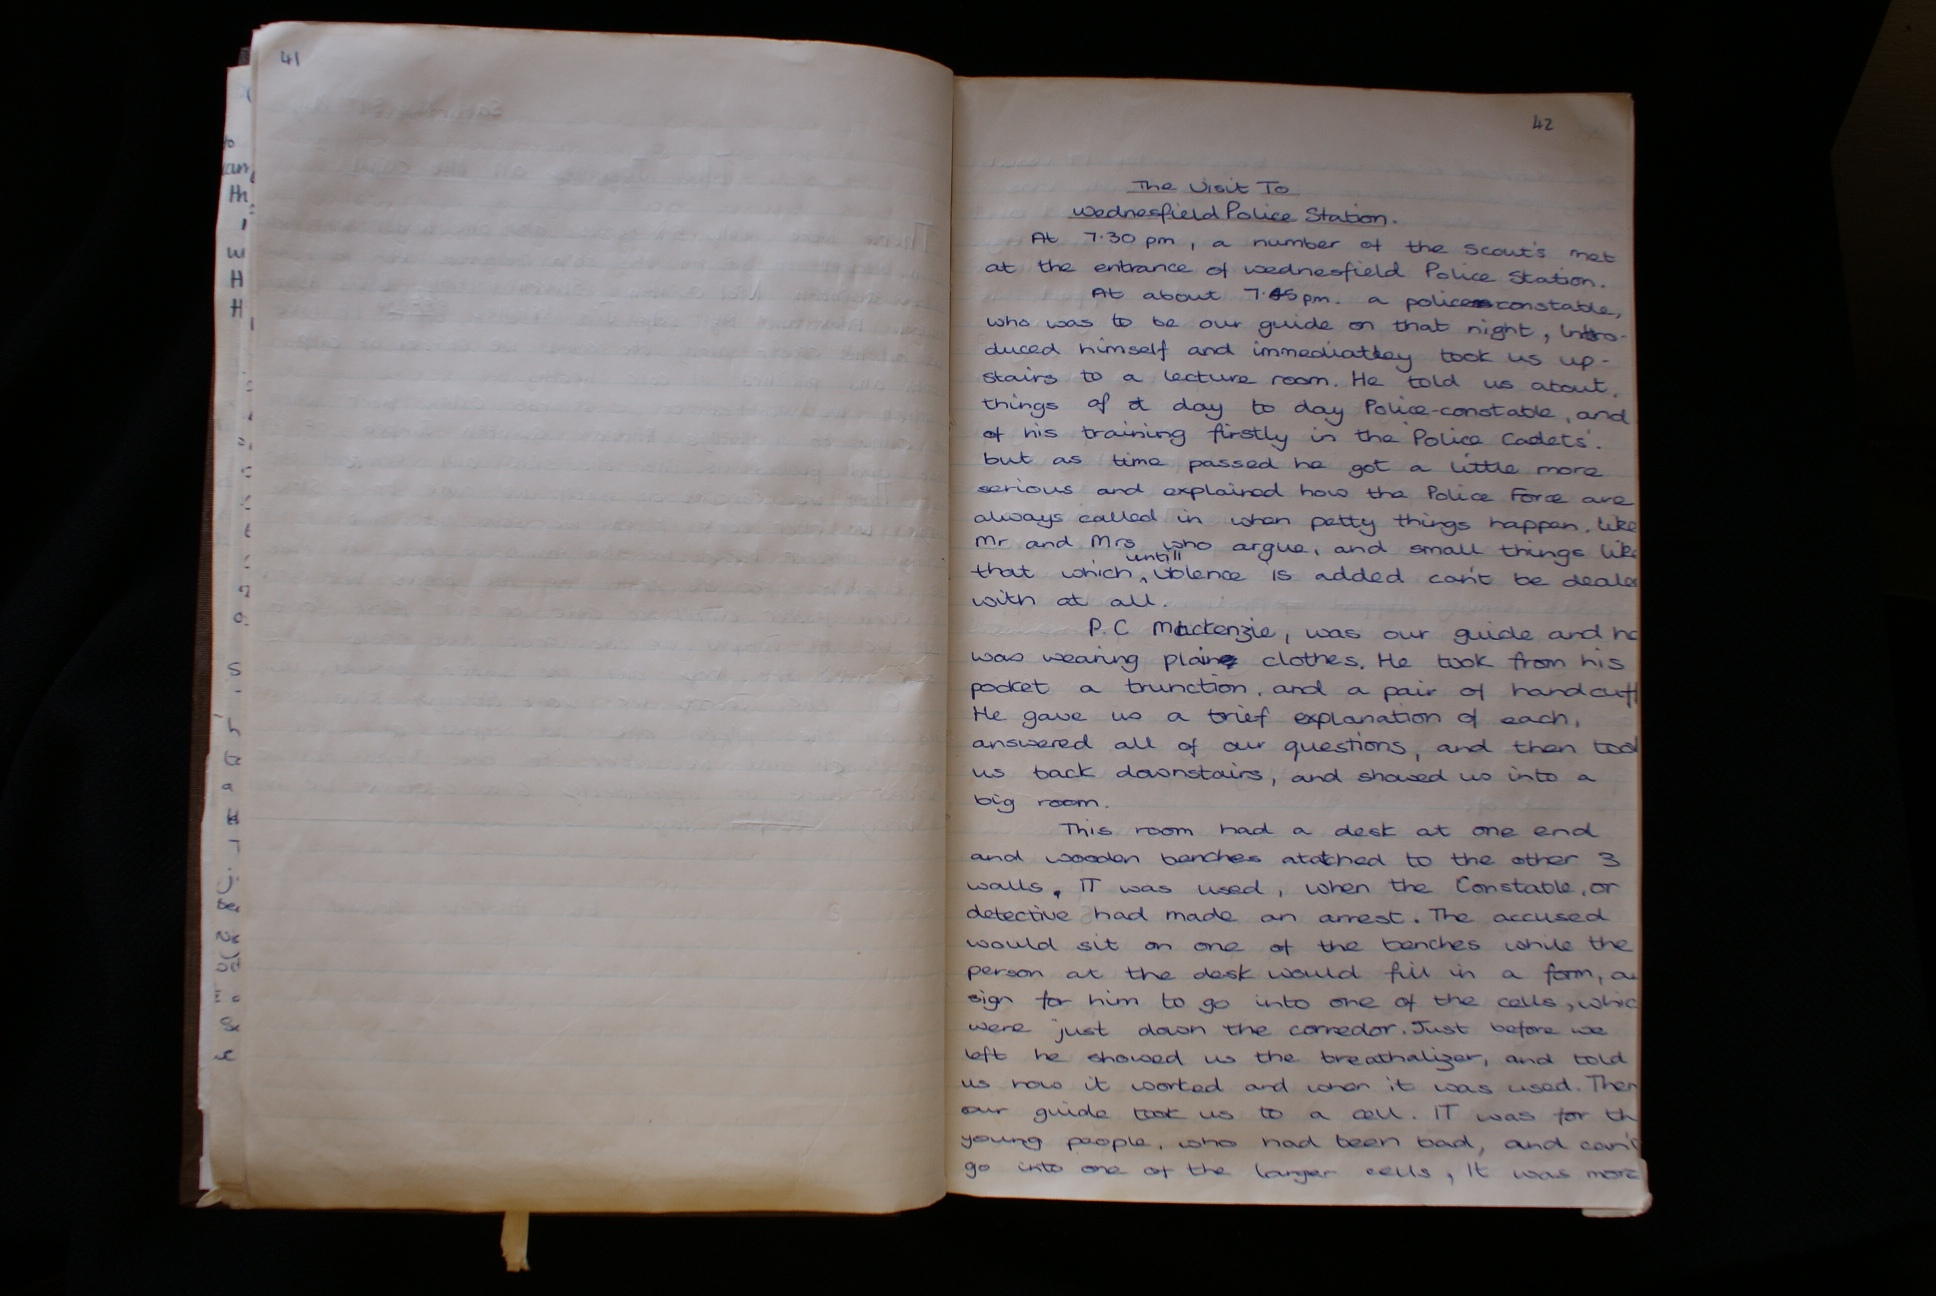 41
42
The Visit To
Wednesfield Police Station.
At 7.30 pm, a number of the Scout's met
at the entrance of Wednesfield Police Station.
At about 7.45pm. a police constable,
who was to be our guide on that night, intro-
duced himself and immediatley took us up-
stairs to a lecture room. He told us about.
things of a day to day Police-constable, and
of his training firstly in the 'Police Cadets'.
but as time passed he got a little more
serious and explained how the Police Force are
always called in when petty things happen. like
Mr and Mrs who argue, and small things like
that which, untill violence is added can't be
with at all.
P.C Mackenzie, was our guide and he
was wearing plain clothes. He took from his
pocket a trunction, and a pair of handcuff
He gave us a brief explanation of each,
answered all of our questions, and then took
us back downstairs, and showed us into a
big room.
This room had a desk at one end
and wooden benches atatched to the other 3
walls. IT was used, when the Constable, or
detective had made an arrest. The accused
would sit on one of the benches while the
person at the desk would fill in a form, a
sign for him to go into one of the cells, whic
were just down the corredor. Just before we
left he showed us the breathalizer, and told
us how it worked and when it was used. Then
our guide took us to a cell. IT was for th
young people, who had been bad, and can't
go into one of the larger cells, It was more